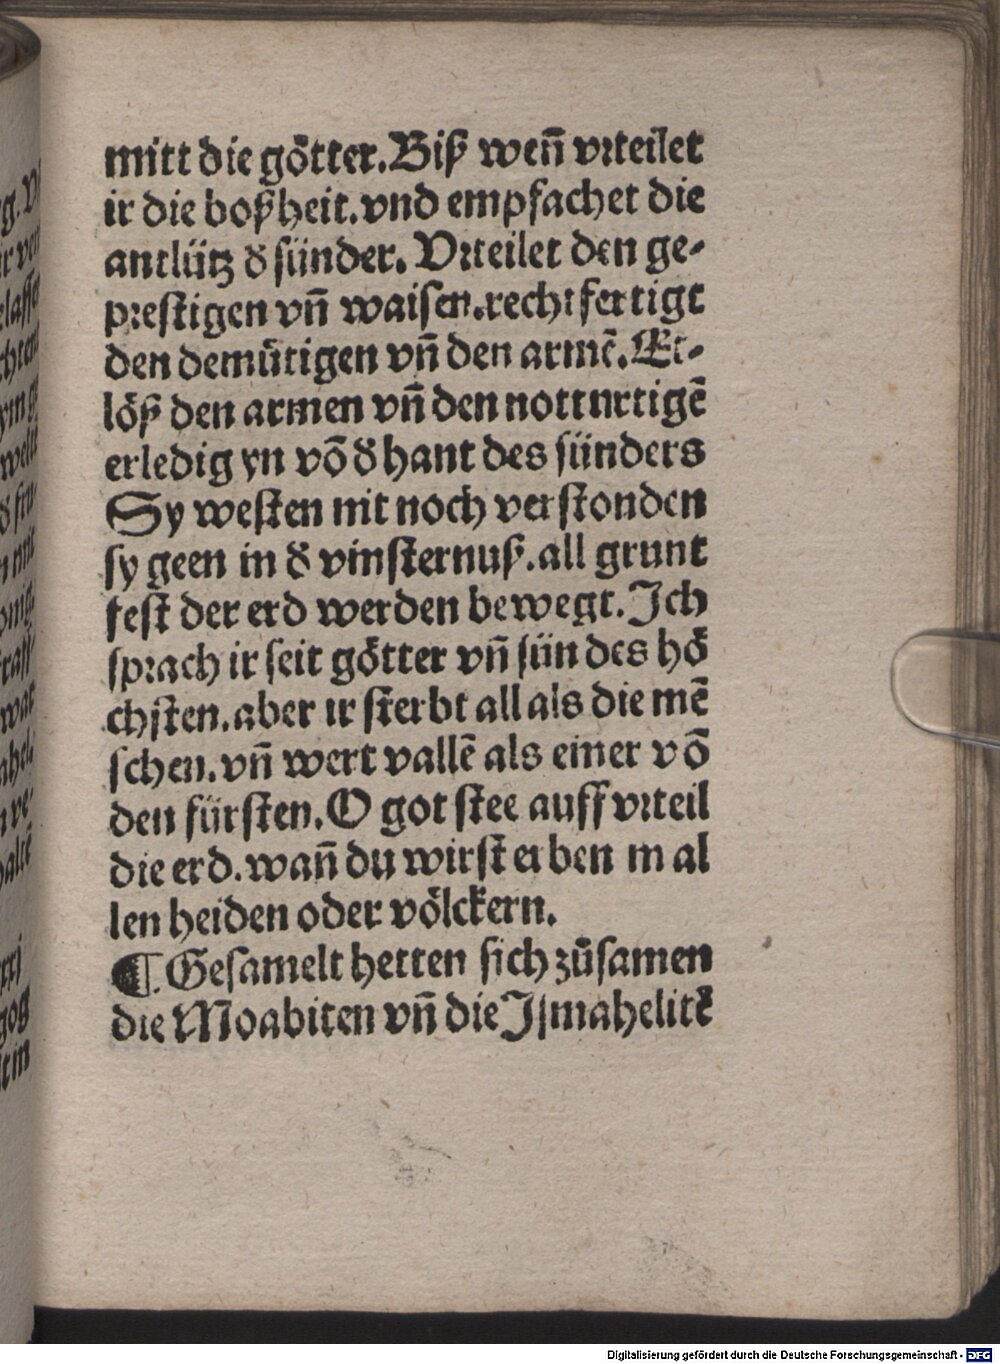 mitt die götter. Biß wen̄ vrteilet
ir die boßheit. vnd empfachet die
antlütz ð sünder. Vrteilet den ge-
prestigen vn̄ waisen. rechtfertigt
den demütigen vn̄ den armē. Er-
löß den armen vn̄ den notturtigē
erledig yn vō ð hant des sünders
Sy westen nit noch verstonden
sy geen in ð vinsternuß. all grunt
fest der erd werden bewegt. Ich
sprach ir seit götter vn̄ sün des hö
chsten. aber ir sterbt all als die mē
schen. vn̄ wert vallē als einer vō
den fürsten. O got stee auff vrteil
die erd. wan̄ du wirst erben in al
len heiden oder völckern.
¶ Gesamelt hetten sich zůsamen
die Moabiten vn̄ die Ismahelitē
Digitalisierung gefördert durch die Deutsche Forschungsgemeinschaft - DFG